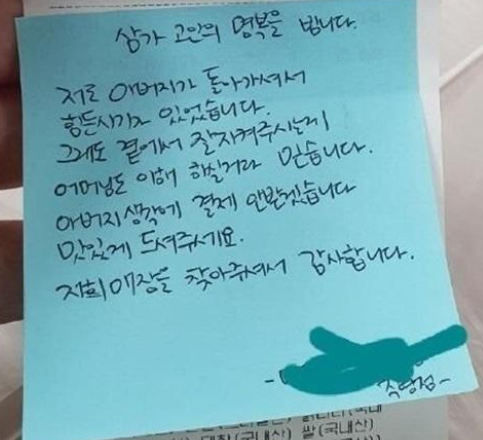 삼가 고인의 명복을 빕니다.
저도 아버지가 돌아가셔서
힘든시기가 있었습니다.
그래도 곁에서 잘지켜주시는게
어머님도 이해 하실거라 믿습니다.
아버지생각에 결제 안받겠습니다
맛있게 드셔주세요.
저희매장을 찾아주셔서 감사합니다.
점-
(국내산) 쌀(국내산)